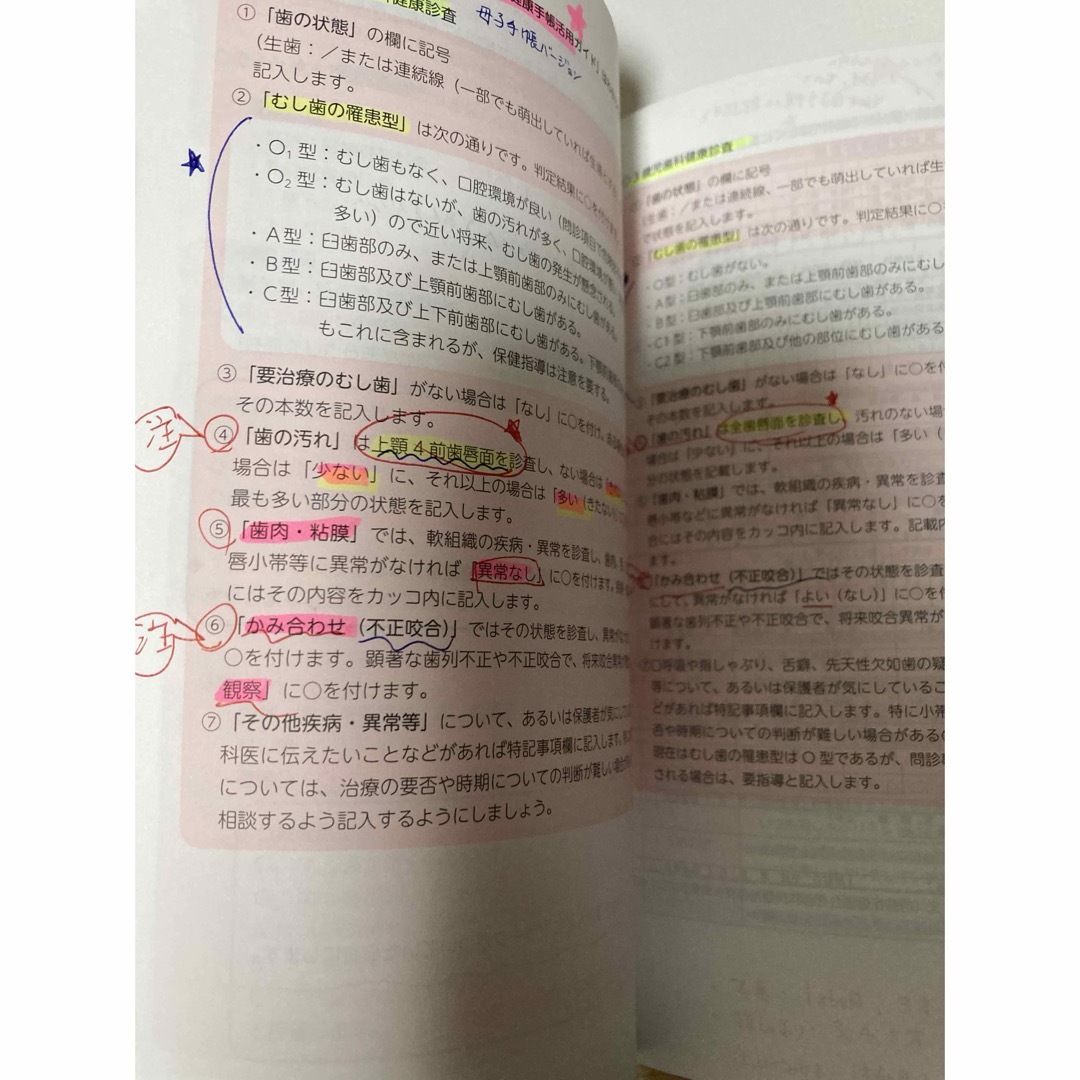 健康手帳活用ガイド」
健康診査
母子手帳バージョン
① 「歯の状態」の欄に記号
(生歯：／または連続線（一部でも萌出していれば生歯とする
記入します。
② 「むし歯の罹患型」は次の通りです。判定結果に○を付けます。
・O1 型：むし歯もなく、口腔環境が良い（問診項目で
・O2 型：むし歯はないが、歯の汚れが多く、口腔環境が
多い）ので近い将来、むし歯の発生が懸念される。
・A 型：臼歯部のみ、または上顎前歯部のみにむし歯がある。
・B 型：臼歯部及び上顎前歯部にむし歯がある。
・C 型：臼歯部及び上下前歯部にむし歯がある。下顎
もこれに含まれるが、保健指導は注意を要する。
③ 「要治療のむし歯」がない場合は「なし」に○を付け、ある
その本数を記入します。
注
④ 「歯の汚れ」は上顎4前歯唇面を診査し、ない場合は
場合は「少ない」に、それ以上の場合は「多い（きたない）
最も多い部分の状態を記入します。
⑤ 「歯肉・粘膜」では、軟組織の疾病・異常を診査し、歯肉
唇小帯等に異常がなければ「異常なし」に○を付けます。
にはその内容をカッコ内に記入します。
注
⑥ 「かみ合わせ（不正咬合）」ではその状態を診査し、異常が
○を付けます。顕著な歯列不正や不正咬合で、将来咬合異常
観察」に○を付けます。
⑦ 「その他疾病・異常等」について、あるいは保護者が気にして
科医に伝えたいことなどがあれば特記事項欄に記入します。
については、治療の要否や時期についての判断が難しい場合
相談するよう記入するようにしましょう。
3 歳児歯科健康診査
「歯の状態」の欄に記号
(生歯：／または連続線、一部でも萌出していれば生
で状態を記入します。
「むし歯の罹患型」は次の通りです。判定結果に○
・O型：むし歯がない。
・A型：臼歯部のみ、または上顎前歯部のみにむし
・B型：臼歯部及び上顎前歯部にむし歯がある。
・C1型：下顎前歯部のみにむし歯がある。
・C2型：下顎前歯部及び他の部位にむし歯がある
「要治療のむし歯」がない場合は「なし」に○を付
その本数を記入します。
「歯の汚れ」は全歯唇面を診査し、汚れのない場
合は「少ない」に、それ以上の場合は「多い（
分の状態を記載します。
「歯肉・粘膜」では、軟組織の疾病・異常を診査
唇小帯などに異常がなければ「異常なし」に○を
合にはその内容をカッコ内に記入します。記載内
「かみ合わせ（不正咬合）」ではその状態を診査
にして、異常がなければ「よい（なし）」に○を付
顕著な歯列不正や不正咬合で、将来咬合異常が
けます。
口呼吸や指しゃぶり、舌癖、先天性欠如歯の疑
等について、あるいは保護者が気にしているこ
どがあれば特記事項欄に記入します。特に小帯
否や時期についての判断が難しい場合があるの
現在はむし歯の罹患型は O 型であるが、問診
される場合は、要指導と記入します。